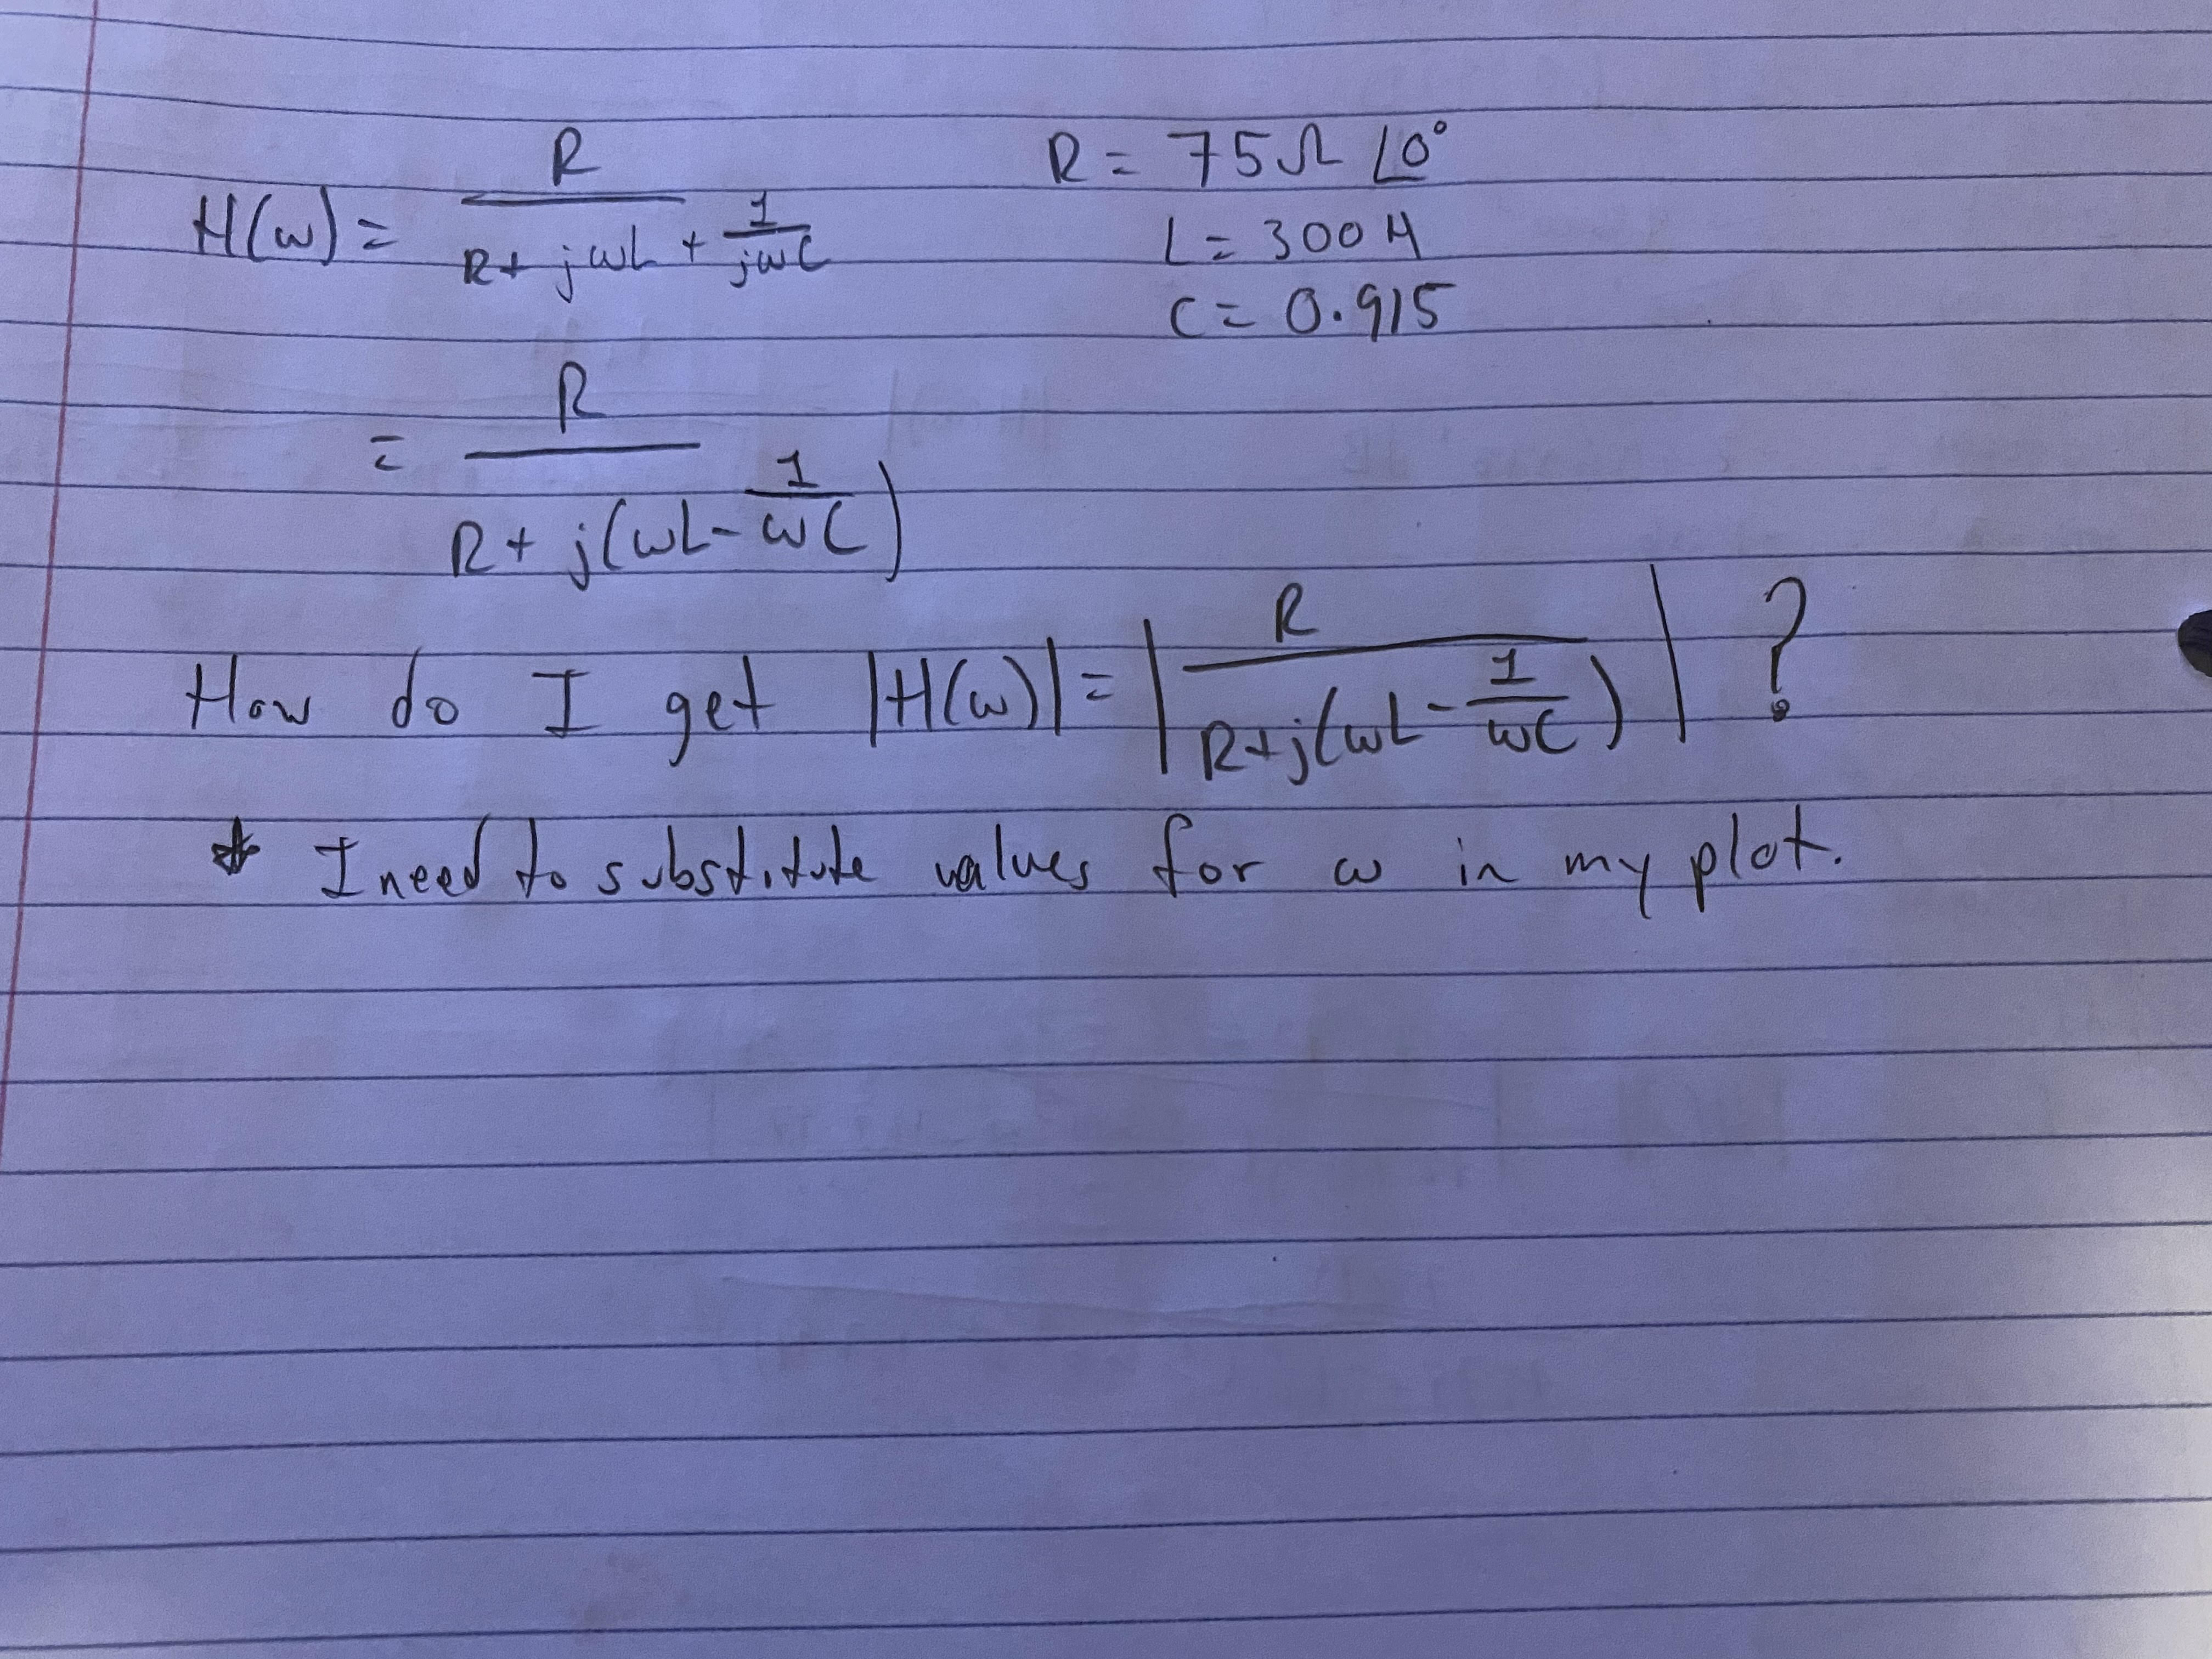 H(ω) = R / (R + jωL + 1/(jωC))    R = 75Ω ∠0°
L = 300 H
C = 0.915
= R / (R + j(ωL - 1/(ωC)))
How do I get |H(ω)| = |R / (R+j(ωL - 1/(ωC)))| ?
* I need to substitute values for ω in my plot.